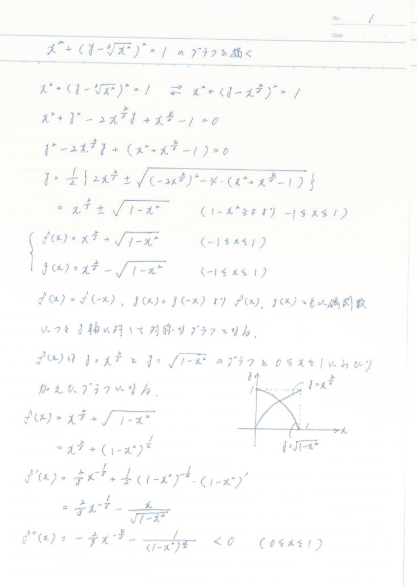 No. 1
Date
x² + (y - ∛x²)² = 1 のグラフを描く
x² + (y - ∛x²)² = 1 ⇄ x² + (y - x^{2/3})² = 1
x² + y² - 2x^{2/3}y + x^{4/3} - 1 = 0
y² - 2x^{2/3}y + (x² + x^{4/3} - 1) = 0
y = 1/2 { 2x^{2/3} ± √((-2x^{2/3})² - 4・(x² + x^{4/3} - 1)) }
= x^{2/3} ± √(1-x²) (1-x²≧0より -1≦x≦1)
f(x) = x^{2/3} + √(1-x²) (-1≦x≦1)
g(x) = x^{2/3} - √(1-x²) (-1≦x≦1)
f(x) = f(-x), g(x) = g(-x) より f(x), g(x) ともに偶関数
いつもy軸に対して対称なグラフとなる.
f(x)は y = x^{2/3} と y = √(1-x²) のグラフを 0≦x≦1 において
加えたグラフになる.
y
1
y = x^{2/3}
1
x
y = √(1-x²)
f(x) = x^{2/3} + √(1-x²)
= x^{2/3} + (1-x²)^{1/2}
f'(x) = 2/3 x^{-1/3} + 1/2 (1-x²)^{-1/2}・(1-x²)'
= 2/3 x^{-1/3} - x/√(1-x²)
f''(x) = -2/9 x^{-4/3} - 1/(1-x²)^{3/2} < 0 (0≦x≦1)